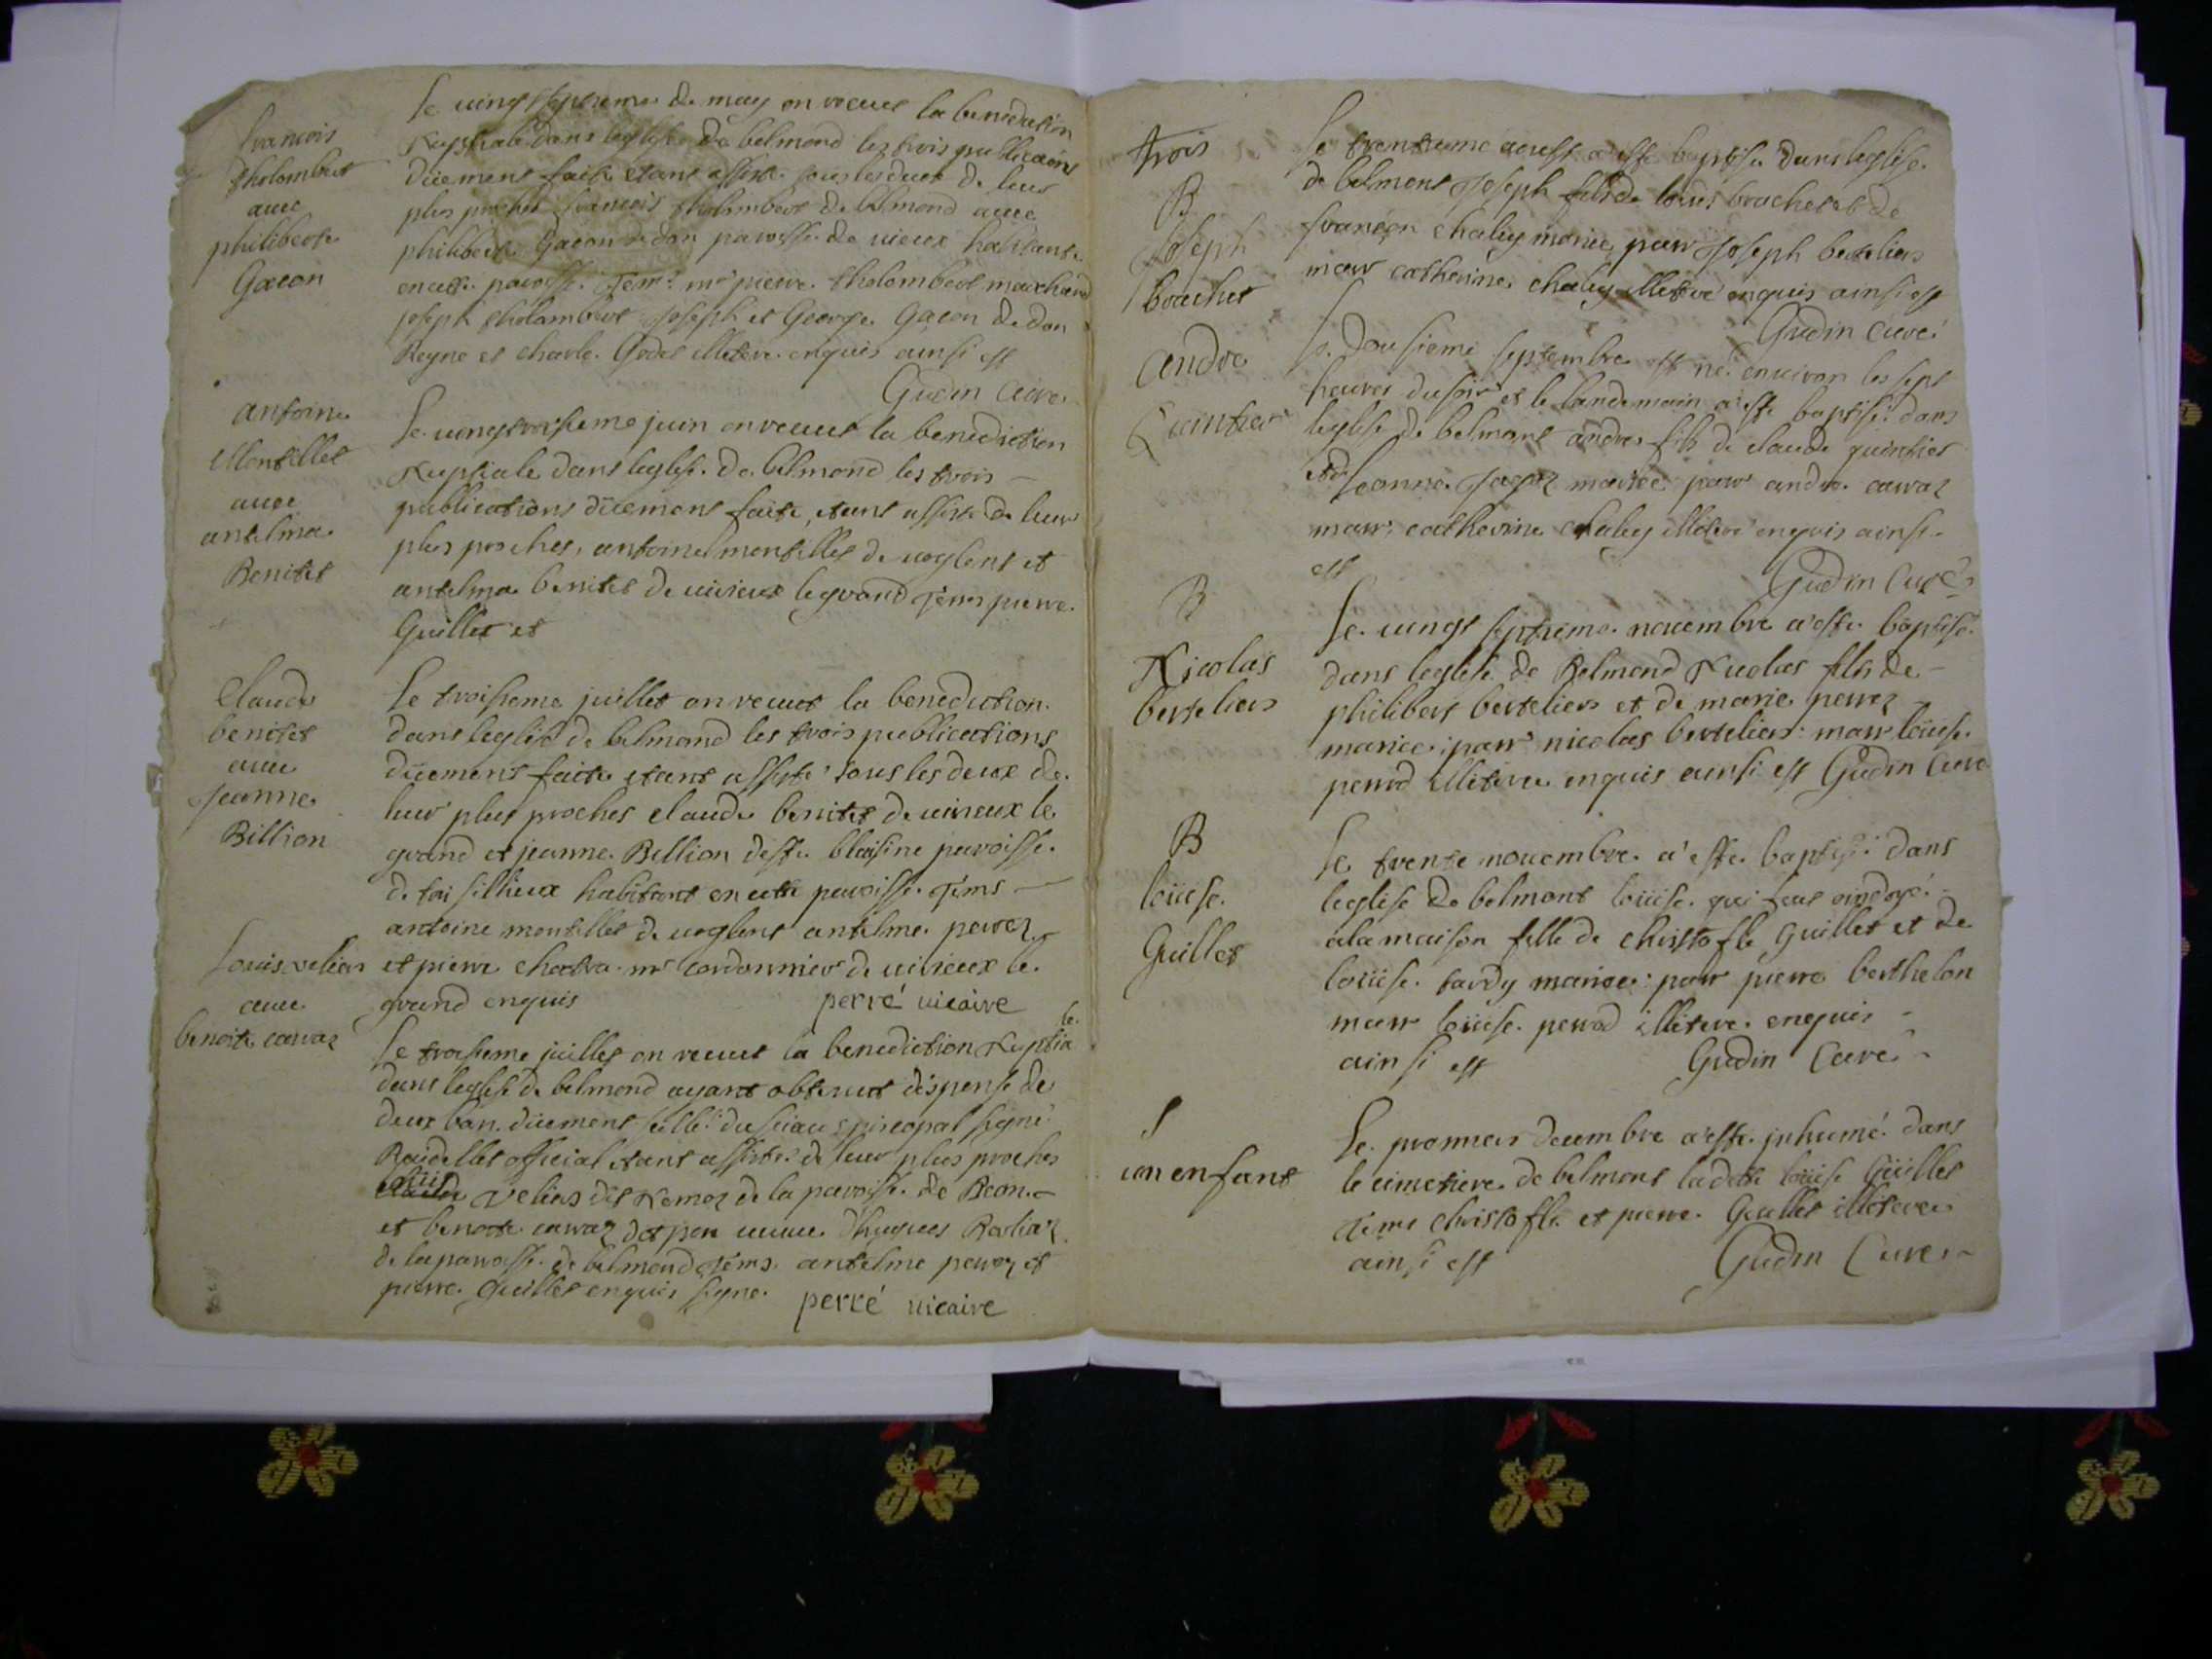 francois
tholombert
auec
philiberte
Gacon
Le uingt septieme de may on receut la benediction
Nuptiale dans leglise de belmond les trois publicaõns
düement faite etant assisté sous les deux de leur
plus proches francois tholombert de belmond auec
philiberte Gacon de don paroisse de uieux habitante
en cette paroisse Tems mre pierre tholombert marchand
joseph tholombert joseph et George Gacon de don
Reyne et charle Godet illitere enquis ainsi est
Gudin Curé
antoine
Montillet
auec
antelma
Benitet
Le uingt troisieme juin on receut la benediction
Nuptiale dans leglise de belmond les trois
publications düement faite, etant assisté de leur
plus proches, antoine montillet de uoglent et
antelma benitet de uirieux le grand Tems pierre
Guillet et
Claude
benitet
auec
Jeanne
Billion
Le troisieme juillet on receut la benediction
dans leglise de belmond les trois publications
düement faite etant assisté sous les deux de
leur plus proches claude benitet de uirieux le
grand et jeanne Billion deste blaisine paroisse
de taisillieux habitant en cette paroisse Tems
antoine montillet de uoglent antelme perroz
et pierre chatra mre cordonnier de uirieux le
grand enquis perré uicaire
Louis velias
auec
benoite carraz
Le troisieme juillet on receut la benediction Nuptia
le
dans leglise de belmond ayant obtenut dispense de
deux ban düement seellé du sceau episcopal signé
Roüdellet official etant assisté de leur plus proches
loüis velias dit Nemoz de la paroisse de Beon
et benoite carraz dit pon ueuue dhugues Rosliaz
de la paroisse de belmond Tems antelme perroz et
pierre Guillet enquis signe perré uicaire
trois
B
Joseph
brochet
Le trentieme aoust a esté baptisé dans leglise
de belmont Joseph fils de loüis brochet et de
francon chaley mariée parr Joseph berteliers
marr catherine chaley illiteré enquis ainsi est
Gudin Curé
andre
Quintier
Le dousieme septembre est né enuiron les sept
heures du soir et le landemain a esté baptisé dans
leglise de belmont andre fils de claude quintier
et de Jeanne Jagoz mariée parr andre carraz
marr catherine chaley illiteré enquis ainsi
est Gudin Curé
B
Nicolas
berteliers
Le uingt septieme nouembre a esté baptisé
dans leglise de Belmond Nicolas fils de
philibert berteliers et de marie perroz
mariée parr nicolas berteliers marr loüise
perrod illitere enquis ainsi est Gudin Curé
B
loüise
Guillet
Le trente nouembre a esté baptisé dans
leglise de belmont loüise qui feut ondoyé
a la maison fille de christofle Guillet et de
loüise tardy mariée parr pierre berthelon
marr loüise perrod illitere enquis
ainsi est Gudin Curé
S
un enfant
Le premier decembre a esté inhumé dans
le cimetiere de belmont ladite loüise Guillet
Tems christofle et pierre Guillet illitere
ainsi est Gudin Curé